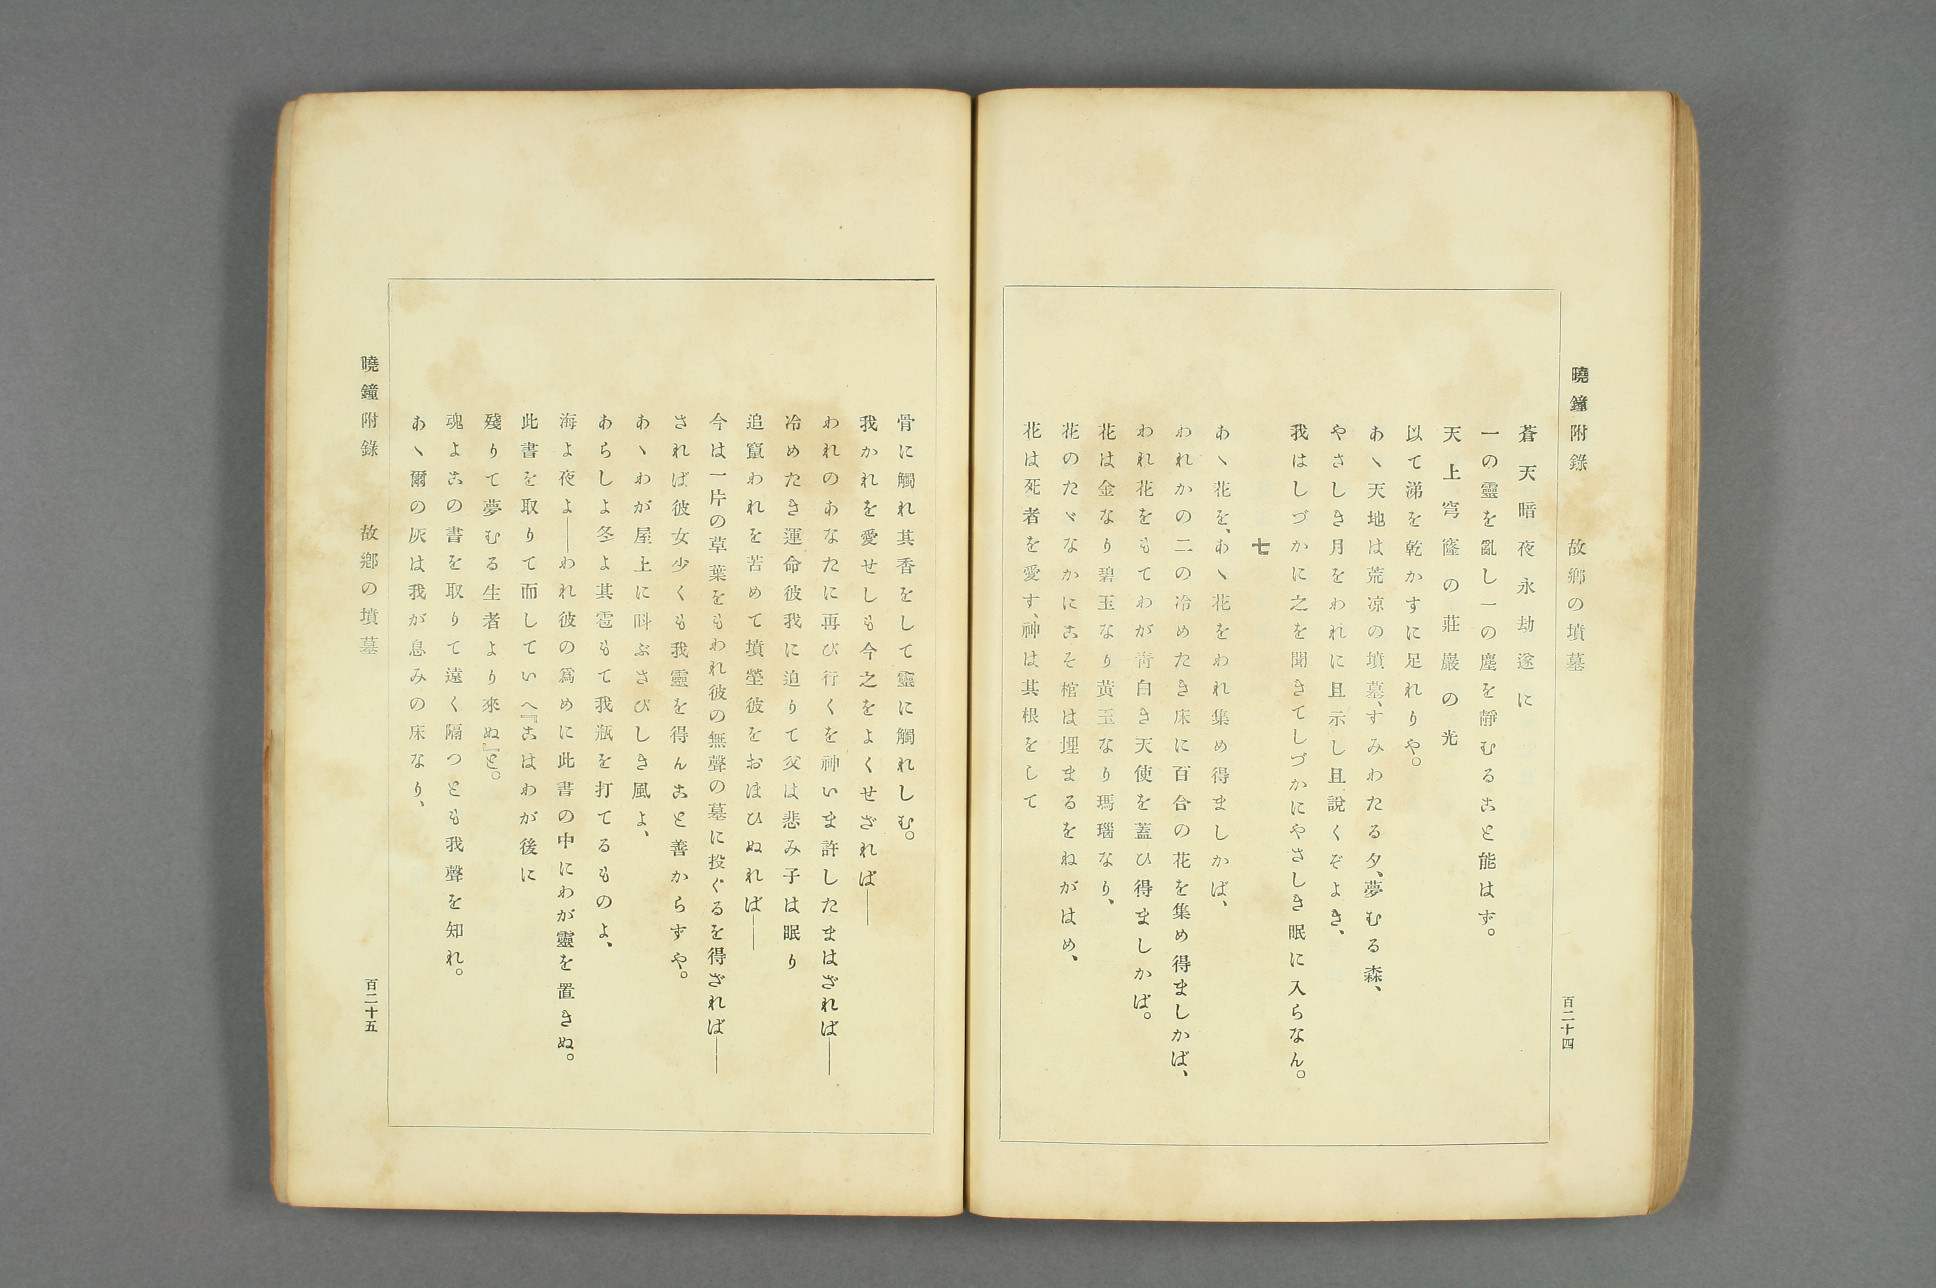 曉鐘附錄　故鄕の墳墓
百二十四
蒼天暗夜永劫遂に
一の靈を亂し一の塵を靜むること能はず。
天上穹窿の莊嚴の光
以て涕を乾かすに足れりや。
あヽ天地は荒凉の墳墓、すみわたる夕、夢むる森、
やさしき月をわれに且示し且說くぞよき、
我はしづかに之を聞きてしづかにやさしき眠に入らなん。
七
あヽ花を、あヽ花をわれ集め得ましかば、
われかの二の冷めたき床に百合の花を集め得ましかば、
われ花をもてわが靑白き天使を蓋ひ得ましかば。
花は金なり碧玉なり黃玉なり瑪瑙なり、
花のたヾなかにこそ棺は埋まるをねがはめ、
花は死者を愛す、神は其根をして
骨に觸れ其香をして靈に觸れしむ。
我かれを愛せしも今之をよくせざれば――
われのあなたに再び行くを神いま許したまはざれば――
冷めたき運命彼我に迫りて父は悲み子は眠り
追竄われを苦めて墳塋彼をおほひぬれば――
今は一片の草葉をもわれ彼の無聲の墓に投ぐるを得ざれば――
されば彼女少くも我靈を得んこと善からずや。
あヽわが屋上に叫ぶさびしき風よ、
あらしよ冬よ其雹もて我瓶を打てるものよ、
海よ夜よ――われ彼の爲めに此書の中にわが靈を置きぬ。
此書を取りて而していへ『こはわが後に
殘りて夢むる生者より來ぬ』と。
魂よこの書を取りて遠く隔つとも我聲を知れ。
あヽ爾の灰は我が息みの床なり、
曉鐘附錄　故鄕の墳墓
百二十五